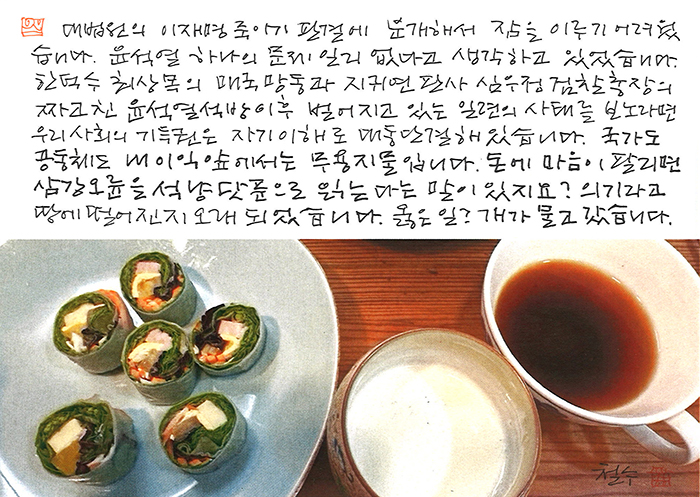 대법원의 이재명 죽이기 판결에 분개해서 잠을 이루기 어려웠
습니다. 윤석열 하나의 문제일리 없다고 생각하고 있었습니다.
한덕수 최상목의 매국망동과 지귀연판사 심우정검찰총장의
짜고친 윤석열석방이후 벌어지고 있는 일련의 사태를 보노라면
우리사회의 기득권은 자기이해로 대동단결해있습니다. 국가도
공동체도 내이익앞에서는 무용지물입니다. 돈에 마음이 팔리면
삼강오륜을 석냥닷푼으로 읽는다는 말이 있지요? 의기라고
땅에떨어진지오래 되었습니다. 옳은일? 개가 물고 갔습니다.
철수